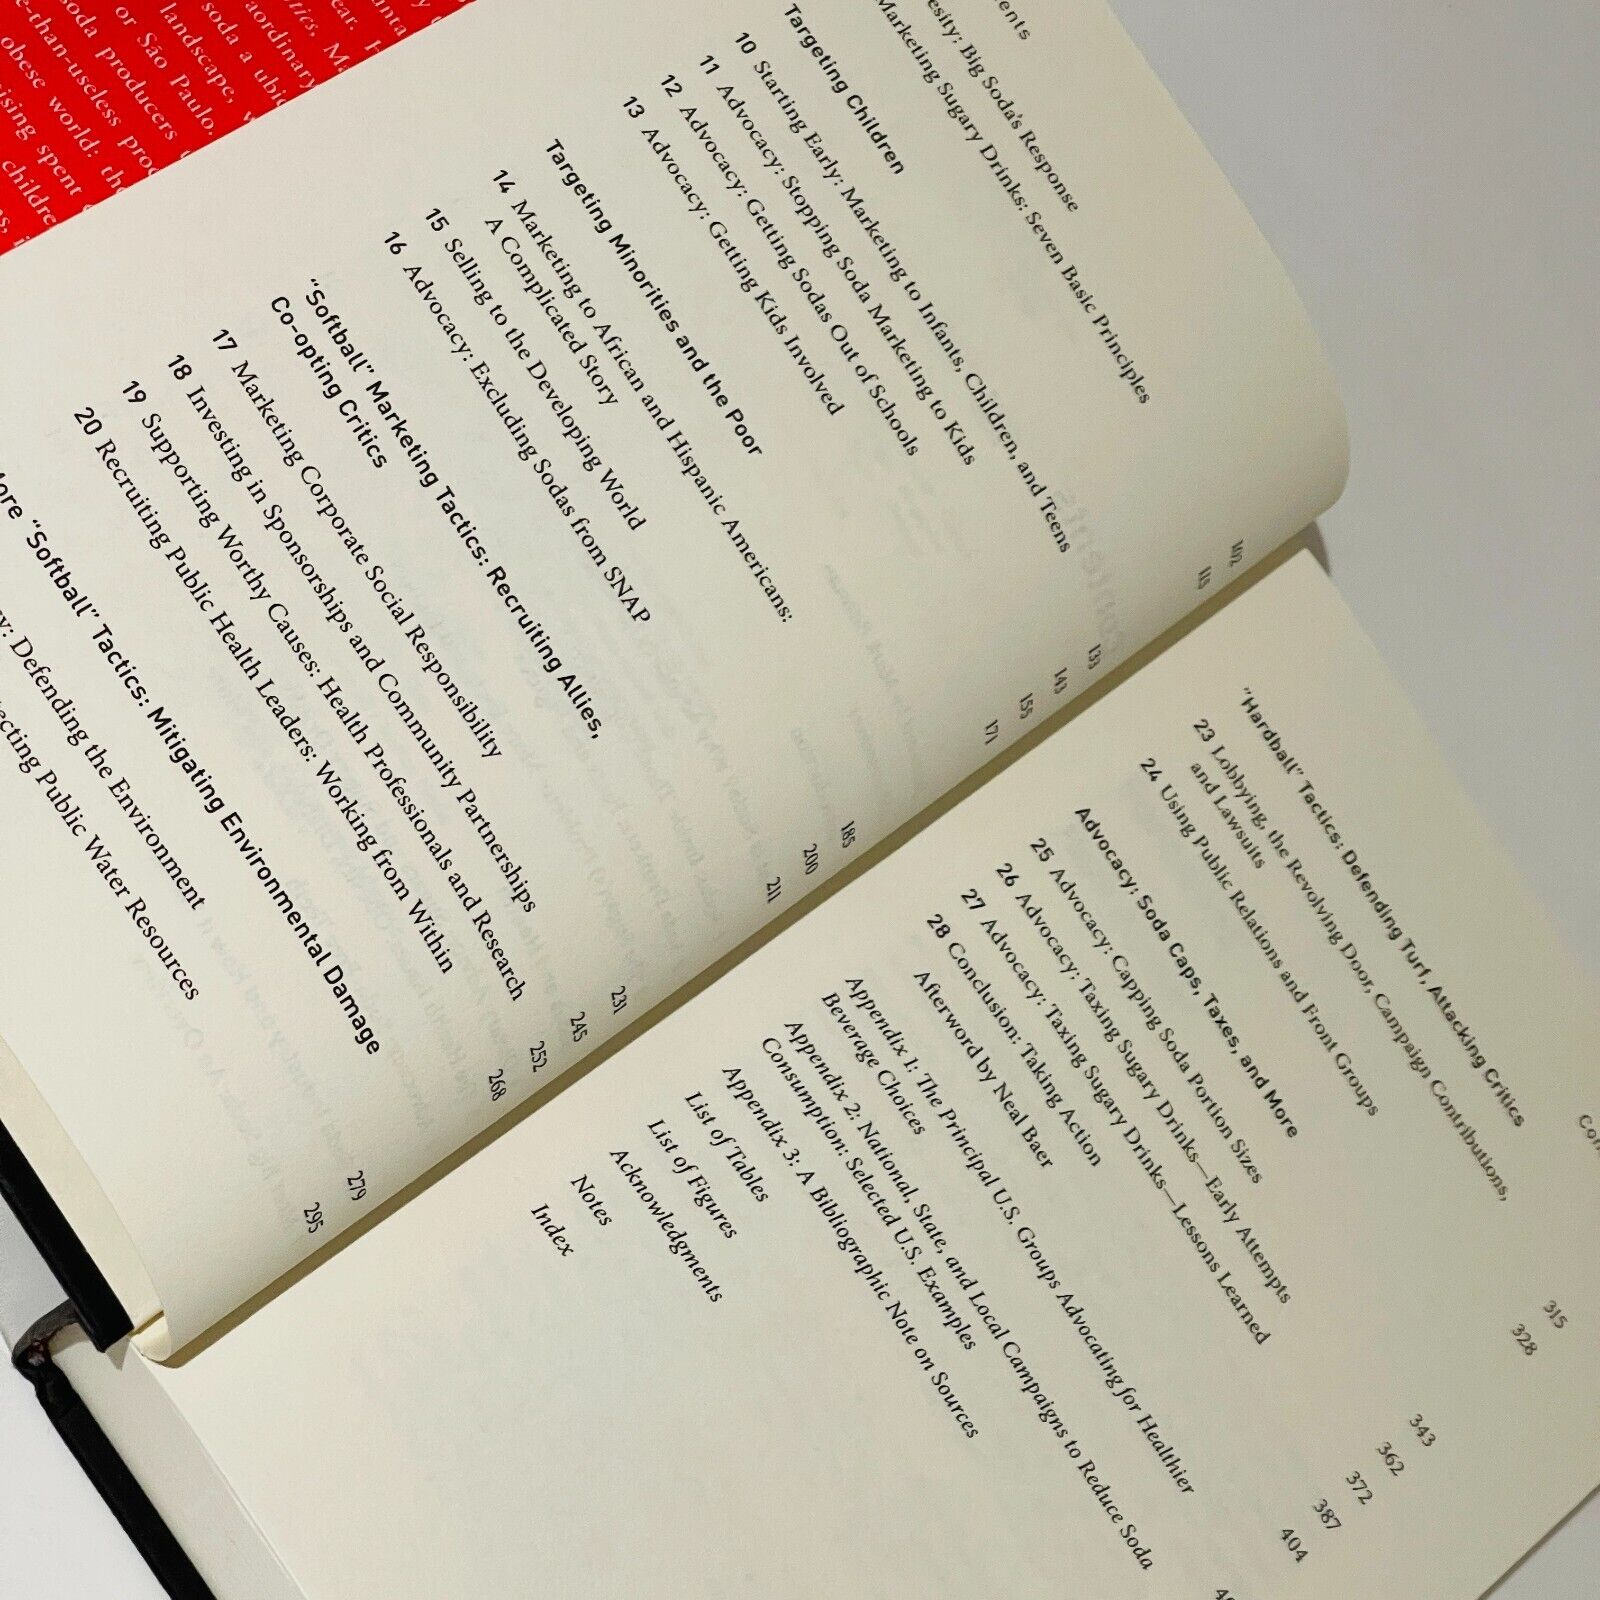 soda producers
or São Paulo.
landscape, w
soda a ubiq
raordinary
e-than-useless prod
obese world: the
ising spent
childre
ents
esity: Big Soda's Response
Marketing Sugary Drinks: Seven Basic Principles
102
115
Targeting Children
10 Starting Early: Marketing to Infants, Children, and Teens
133
11 Advocacy: Stopping Soda Marketing to Kids
143
12 Advocacy: Getting Sodas Out of Schools
155
13 Advocacy: Getting Kids Involved
171
Targeting Minorities and the Poor
14 Marketing to African and Hispanic Americans:
A Complicated Story
185
15 Selling to the Developing World
200
16 Advocacy: Excluding Sodas from SNAP
211
"Softball" Marketing Tactics: Recruiting Allies,
Co-opting Critics
17 Marketing Corporate Social Responsibility
231
18 Investing in Sponsorships and Community Partnerships
245
19 Supporting Worthy Causes: Health Professionals and Research
252
20 Recruiting Public Health Leaders: Working from Within
268
ore "Softball" Tactics: Mitigating Environmental Damage
y: Defending the Environment
279
ecting Public Water Resources
295
"Hardball" Tactics: Defending Turf, Attacking Critics
23 Lobbying, the Revolving Door, Campaign Contributions,
and Lawsuits
315
24 Using Public Relations and Front Groups
328
Advocacy: Soda Caps, Taxes, and More
25 Advocacy: Capping Soda Portion Sizes
343
26 Advocacy: Taxing Sugary Drinks—Early Attempts
362
27 Advocacy: Taxing Sugary Drinks—Lessons Learned
372
28 Conclusion: Taking Action
387
Afterword by Neal Baer
404
Appendix 1: The Principal U.S. Groups Advocating for Healthier
Beverage Choices
Appendix 2: National, State, and Local Campaigns to Reduce Soda
Consumption: Selected U.S. Examples
Appendix 3: A Bibliographic Note on Sources
List of Tables
List of Figures
Acknowledgments
Notes
Index